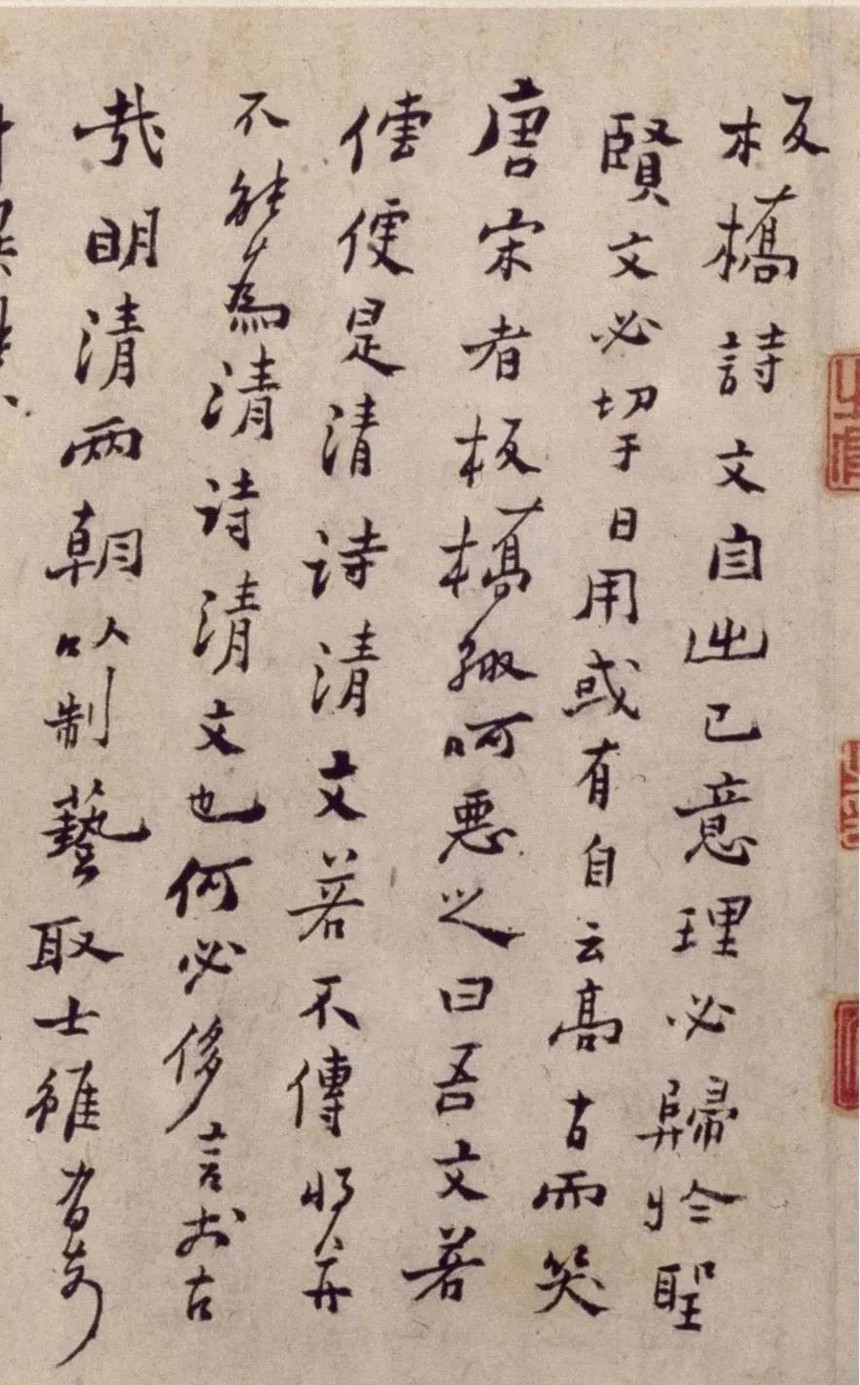 板橋詩文自出己意理必歸於聖
賢文必切于日用或有自云高古而笑
唐宋者板橋輒呵惡之曰吾文若
傳便是清詩清文若不傳將并
不能為清詩清文也何必侈言前古
哉明清兩朝以制藝取士雖有奇